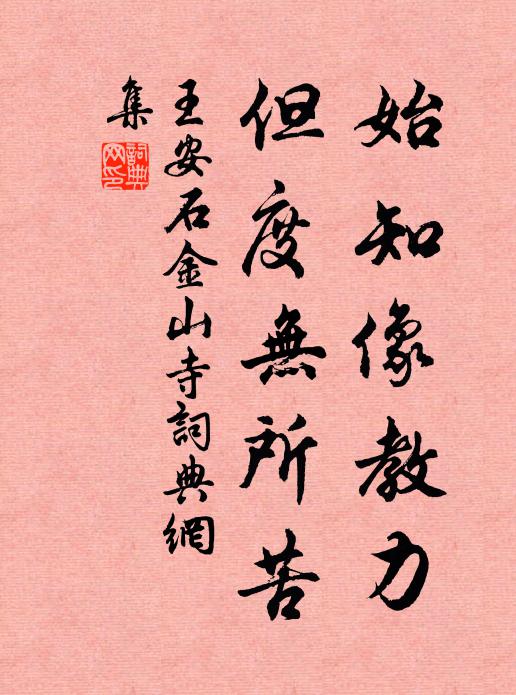 始知像教力
但度無所苦
王安石金山寺詞典網
集
詞典
网印